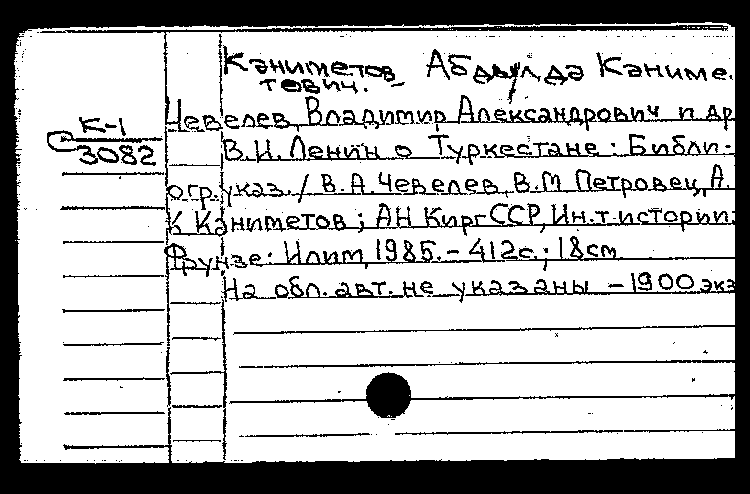 Каниметов Абдылда Каниме-
тович. –
К-1
3082
Чевелев, Владимир Александрович и др
В.И. Ленин о Туркестане: Библи-
огр. указ. / В.А. Чевелев, В.М Петровец, А.
К Каниметов; АН Кирг ССР, Ин.т истории.
Фрунзе: Илим, 1985. – 412с.; 18см
На обл. авт. не указаны – 1900 экз